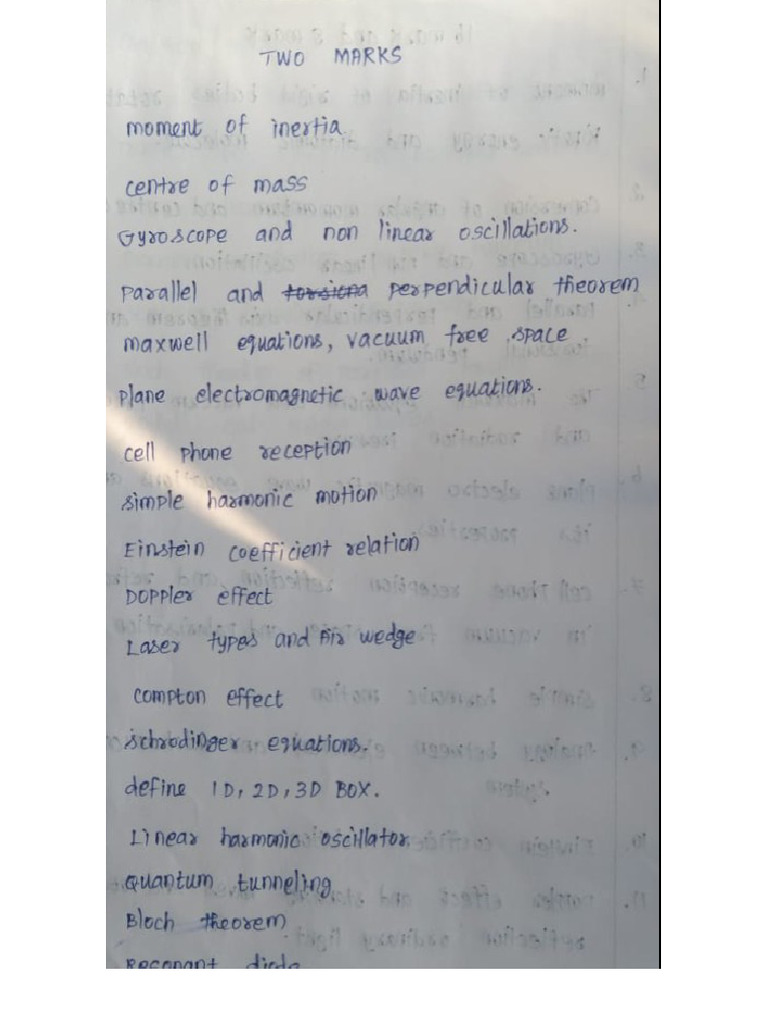 TWO MARKS
moment of inertia.
centre of mass
Gyroscope and non linear oscillations.
parallel and torsiona perpendicular theorem
maxwell equations, vacuum free space.
plane electromagnetic wave equations.
cell phone reception
simple harmonic motion
Einstein coefficient relation
Doppler effect
Laser types and Air wedge
compton effect
schrodinger equations.
define 1D, 2D, 3D BOX.
Linear harmonic oscillator
Quantum tunneling
Bloch theorem
Resonant diode